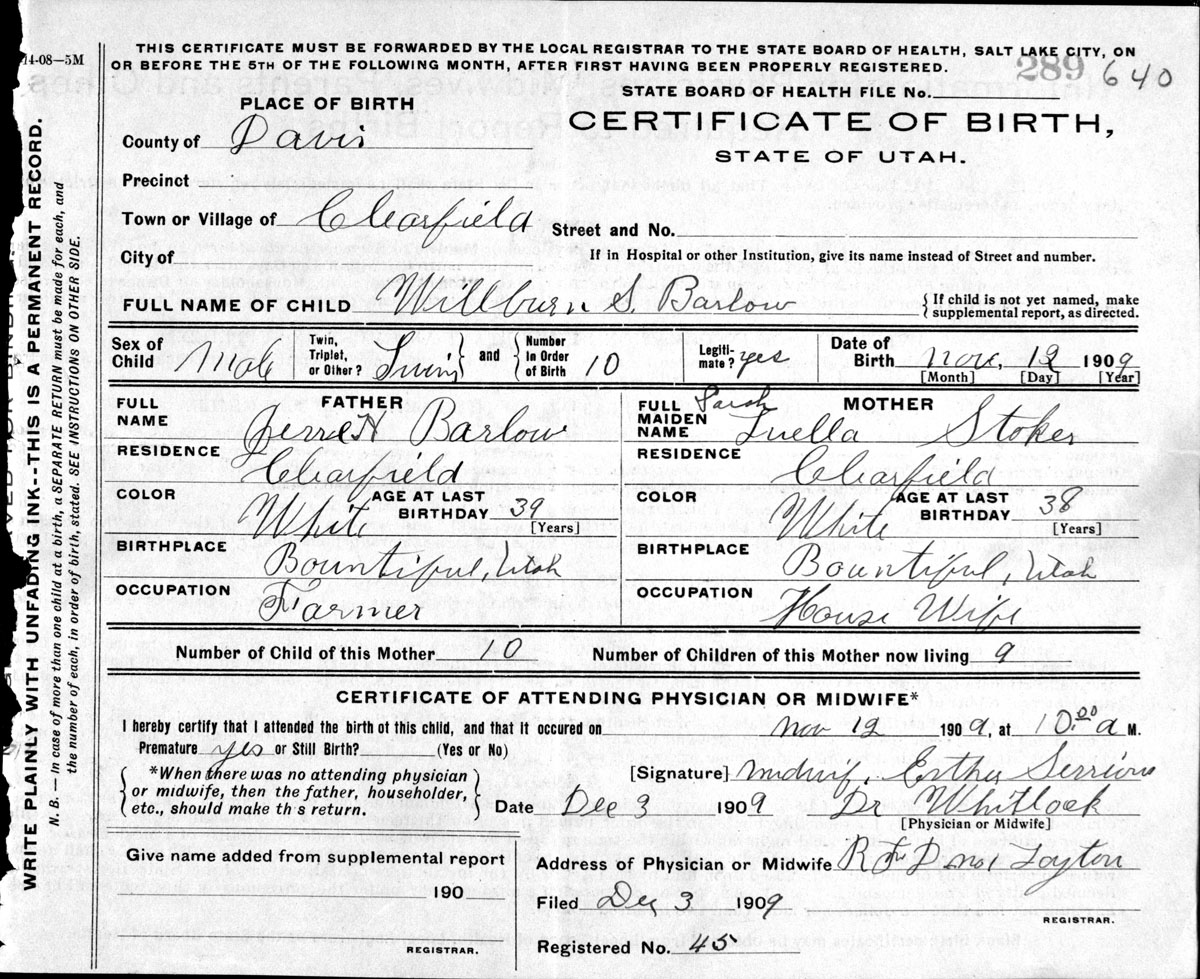 14-08—5M
THIS CERTIFICATE MUST BE FORWARDED BY THE LOCAL REGISTRAR TO THE STATE BOARD OF HEALTH, SALT LAKE CITY, ON
OR BEFORE THE 5TH OF THE FOLLOWING MONTH, AFTER FIRST HAVING BEEN PROPERLY REGISTERED.
289 640
STATE BOARD OF HEALTH FILE No.
PLACE OF BIRTH
CERTIFICATE OF BIRTH,
STATE OF UTAH.
County of Davis
Precinct
Town or Village of Clearfield
Street and No.
City of
If in Hospital or other Institution, give its name instead of Street and number.
FULL NAME OF CHILD Willburn S. Barlow
If child is not yet named, make
supplemental report, as directed.
Sex of Child Male
Twin, Triplet, or Other? Twins and Number in Order of Birth 10
Legitimate? yes
Date of Birth Nov, 12 1909
[Month] [Day] [Year]
FATHER
FULL NAME Jerre H Barlow
RESIDENCE Clearfield
COLOR White
AGE AT LAST BIRTHDAY 39
[Years]
BIRTHPLACE Bountiful, Utah
OCCUPATION Farmer
MOTHER
FULL MAIDEN NAME Sarah Luella Stoker
RESIDENCE Clearfield
COLOR White
AGE AT LAST BIRTHDAY 38
[Years]
BIRTHPLACE Bountiful, Utah
OCCUPATION House Wife
Number of Child of this Mother 10 Number of Children of this Mother now living 9
CERTIFICATE OF ATTENDING PHYSICIAN OR MIDWIFE*
I hereby certify that I attended the birth of this child, and that it occured on Nov 12 1909, at 10.00 a M.
Premature yes or Still Birth? (Yes or No)
*When there was no attending physician
or midwife, then the father, householder,
etc., should make th's return.
[Signature] Midwif. Esther
Date Dec 3 1909 Dr Whitlock
[Physician or Midwife]
Give name added from supplemental report
190
REGISTRAR.
Address of Physician or Midwife Layton
Filed Dec 3 1909
REGISTRAR.
Registered No. 45
WRITE PLAINLY WITH UNFADING INK--THIS IS A PERMANENT RECORD.
N. B. — In case of more than one child at a birth, a SEPARATE RETURN must be made for each, and
the number of each, in order of birth, stated. SEE INSTRUCTIONS ON OTHER SIDE.